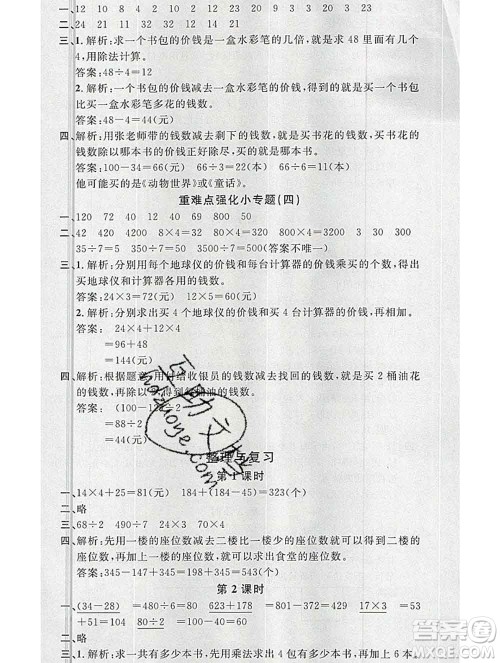 12 24 21 14 21 23 4
三、1. 解析：求一个书包的价钱是一盒水彩笔的几倍，就是求 48 里面有几个
4，用除法计算。
答案：48÷4=12
2. 解析：一个书包的价钱减去一盒水彩笔的价钱，得到的就是买一个书包
比买一盒水彩笔多花的钱数。
答案：48-4=44(元)
四、解析：用张老师带的钱数减去剩下的钱数，就是买书花的钱数，买书花的
钱数除以哪本书的价钱正好没有余数，就可能是买的哪本书。
答案：100-34=66(元) 66÷3=22(本) 66÷6=11(本)
他可能买的是《动物世界》或《童话》。
重难点强化小专题(四)
一、120 72 24 8 12 40 69 2000
二、42 420 4200 800×4 800×4 3 30 300
35÷7=5 350÷7=50 80÷4=20(答案不唯一)
三、1. 解析：分别用每个地球仪的价钱和每台计算器的价钱乘买的个数，就是
买地球仪和计算器各用的钱数。
答案：24×3=72(元) 12×5=60(元)
2. 解析：分别求出买 4 个地球仪的价钱和买 4 台计算器的价钱，再相加。
答案： 24×4+12×4
=96+48
=144(元)
四、解析：根据题意，用付给收银员的钱数减去找回的钱数，就是买 2 桶油花
的钱数，再除以2，得到每桶油的钱数。
答案： (100-12)÷2
=88÷2
=44(元)
整理与复习
第 1 课时
一、14×4+25=81(元) 184+(184-45)=323(个)
二、略
三、68÷2 490÷7 50×4 9×70
四、解析：先用一楼的座位数减去二楼比一楼少的座位数，就可以求出二楼的
座位数，再加上一楼的座位数，即可求出食堂的座位数。
答案：345-147+345=198+345=543(个)
第 2 课时
一、(34-28) =480÷6=80 623+178 =801-440=361 17×3 =53
+51=104 80÷2 =90+40=130
二、略
三、1. 解析：求一共有多少本书，先用乘法求出 4 包有多少本，再加上 6 本。